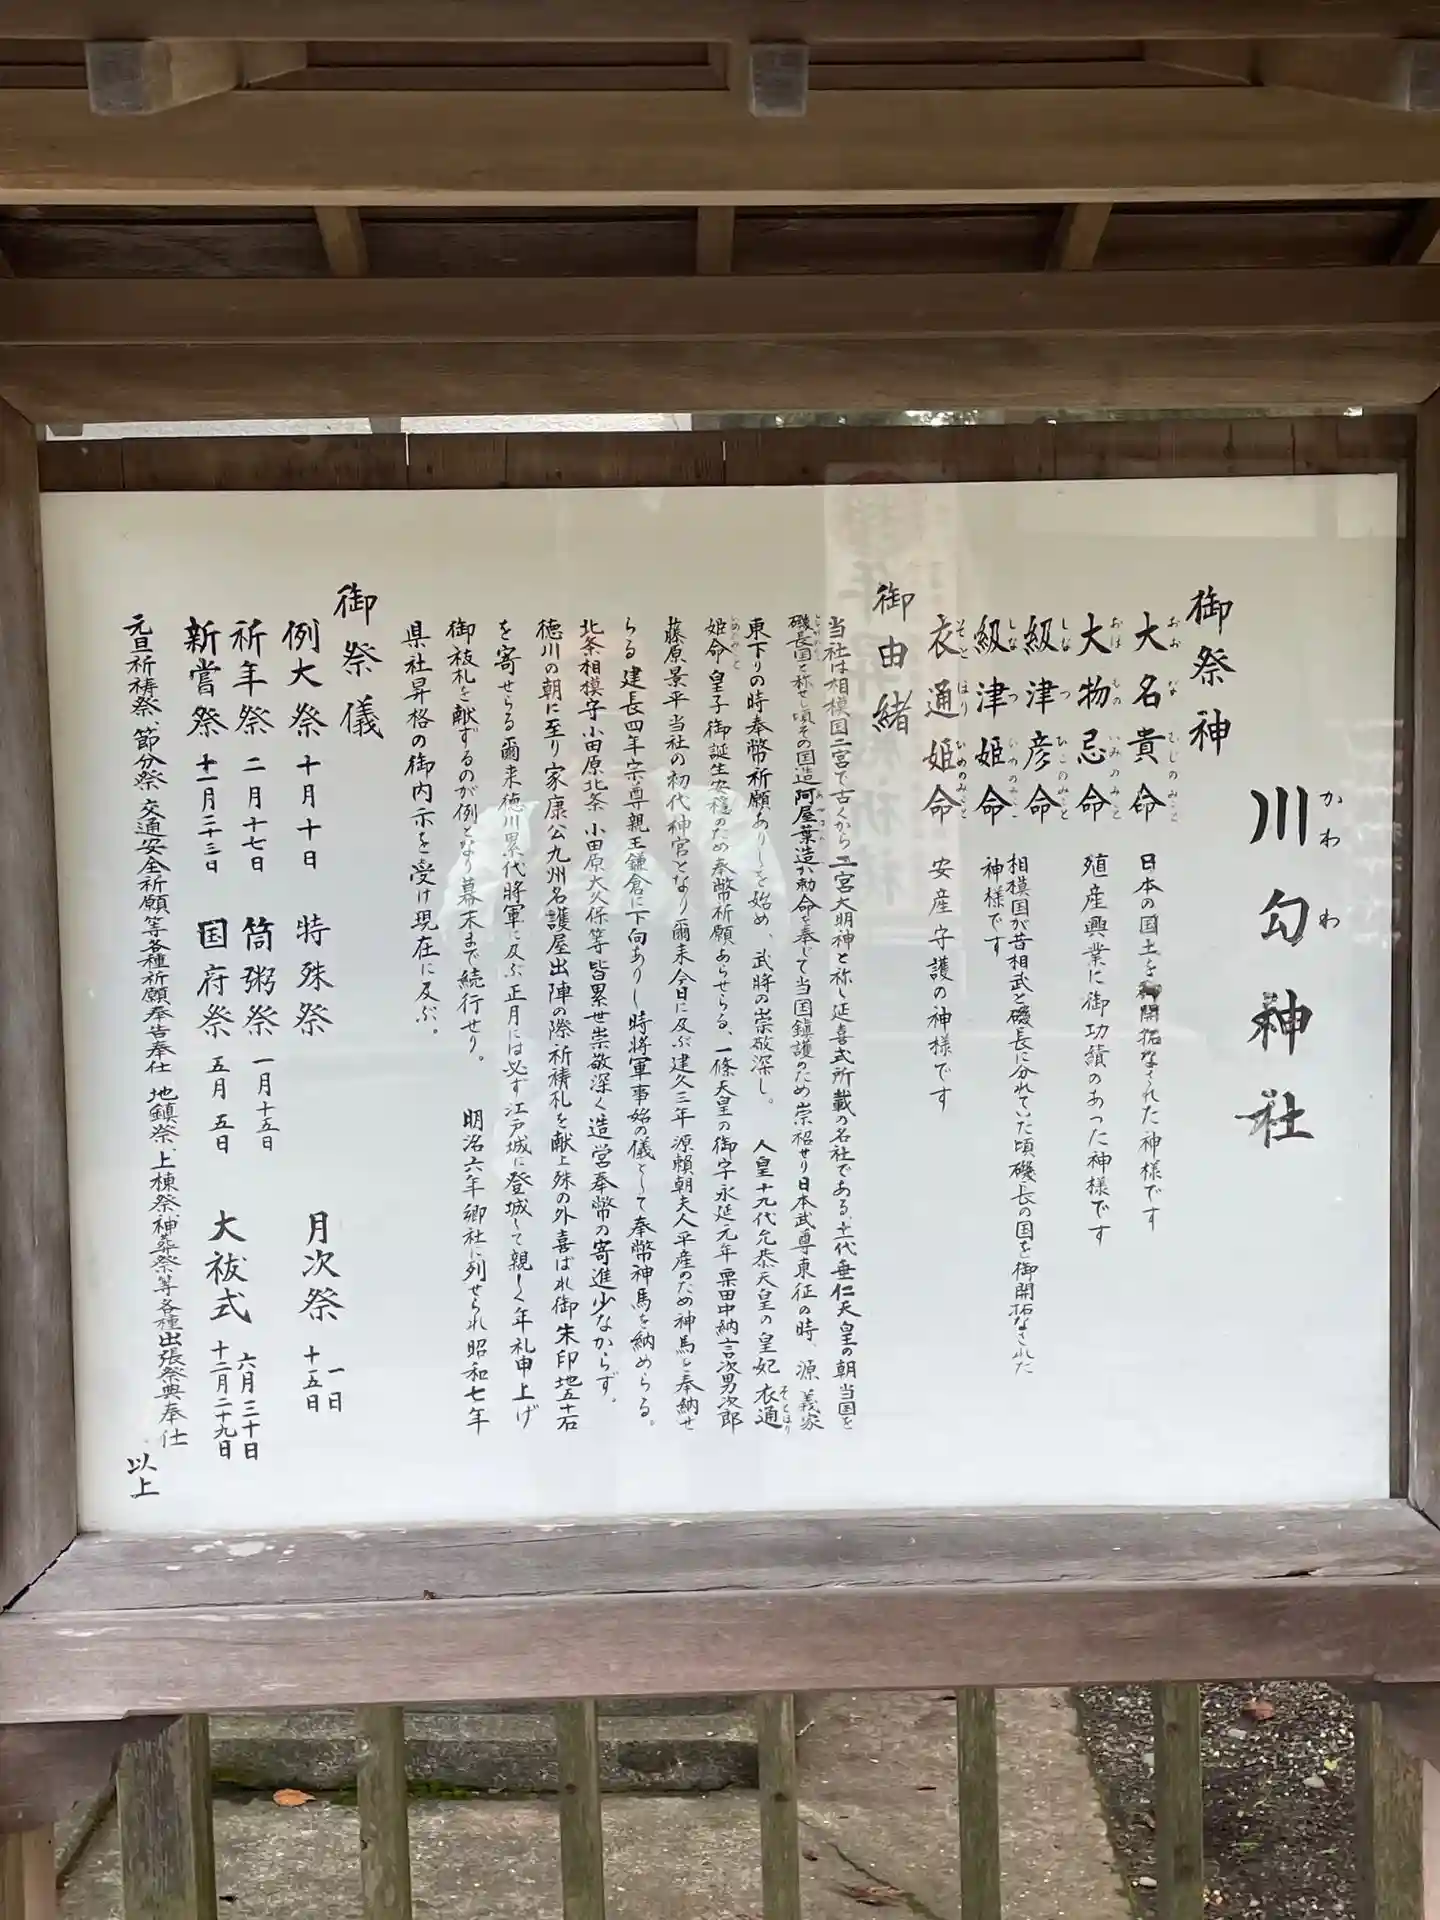 川勾神社
かわわ
御祭神
大名貴命 日本の国土を御開拓なされた神様です
おおなむじのみこと
大物忌命 殖産興業に御功績のあった神様です
おほものいみのみこと
級津彦命
しなつひこのみこと
級津姫命
相模国が昔相武と磯長に分れていた頃磯長の国を御開拓なされた
神様です
衣通姫命 安産守護の神様です
そとほりひめのみこと
御由緒
当社は相模国二宮で古くから二宮大明神と称し延喜式所載の名社である、十一代垂仁天皇の朝当国を
磯長国と称せし頃その国造阿屋葉造が勅命を奉じて当国鎮護のため崇祀せり日本武尊東征の時、源義家
東下りの時奉幣祈願ありしを始め、武将の崇敬深し。 人皇十九代允恭天皇の皇妃衣通
そとほり
姫命皇子御誕生安穏のため奉幣祈願あらせらる、一條天皇の御宇永延元年粟田中納言次男次郎
ひめのみこと
藤原景平当社の初代神官となり爾来今日に及ぶ建久三年源頼朝夫人平産のため神馬を奉納せ
らる建長四年宗尊親王鎌倉に下向ありし時将軍事始の儀として奉幣神馬を納めらる。
北条相模守小田原北条 小田原大久保等皆累世崇敬深く造営奉幣の寄進少なからず。
徳川の朝に至り家康公九州名護屋出陣の際祈祷札を献上殊の外喜ばれ御朱印地五十石
を寄せらる爾来徳川累代将軍に及ぶ正月には必ず江戸城に登城して親しく年礼申上げ
御祓札を献ずるのが例となり幕末まで続行せり。 明治六年郷社に列せられ昭和七年
県社昇格の御内示を受け現在に及ぶ。
御祭儀
例大祭 十月十日 特殊祭 月次祭 一日 十五日
祈年祭 二月十七日 筒粥祭 一月十五日
新嘗祭 十一月二十三日 国府祭 五月五日 大祓式 六月三十日 十二月二十九日
元旦祈祷祭、節分祭、交通安全祈願等各種祈願奉告奉仕 地鎮祭、上棟祭神葬祭等各種出張祭典奉仕
以上